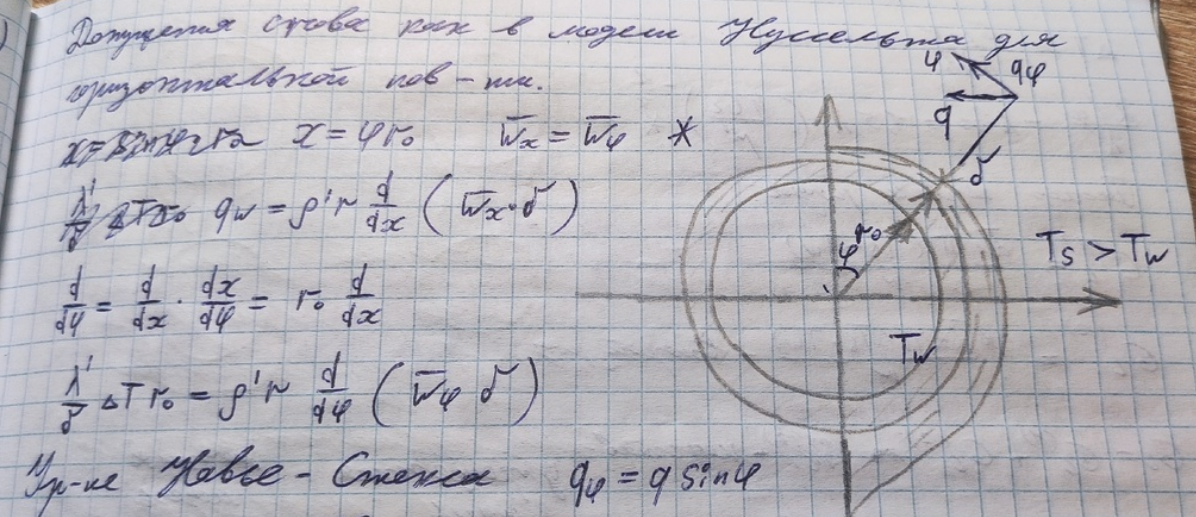 Допущения снова как в модели Нуссельта для
горизонтальной пов-ти.
x = φ r₀ W̄x = W̄φ *
qw = ρ' r d/dx ( W̄x · δ )
d/dφ = d/dx · dx/dφ = r₀ d/dx
λ'/δ ΔT r₀ = ρ' r d/dφ ( W̄φ δ )
Ур-не Навье - Стокса gφ = g sinφ
φ gφ
g
δ
φ r₀
Ts > Tw
Tw